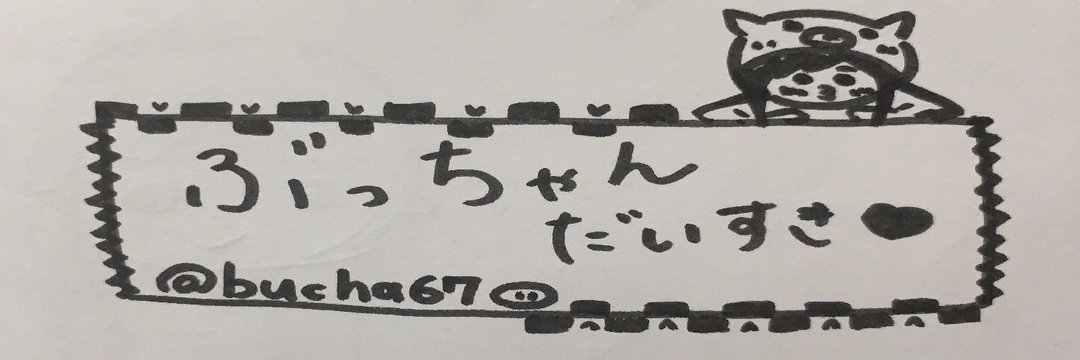 ぶっちゃん
だいすき♥
@bucha67